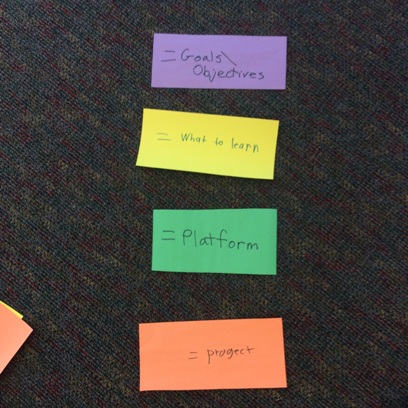 = Goals\
Objectives
= What to learn
= Platform
= progect